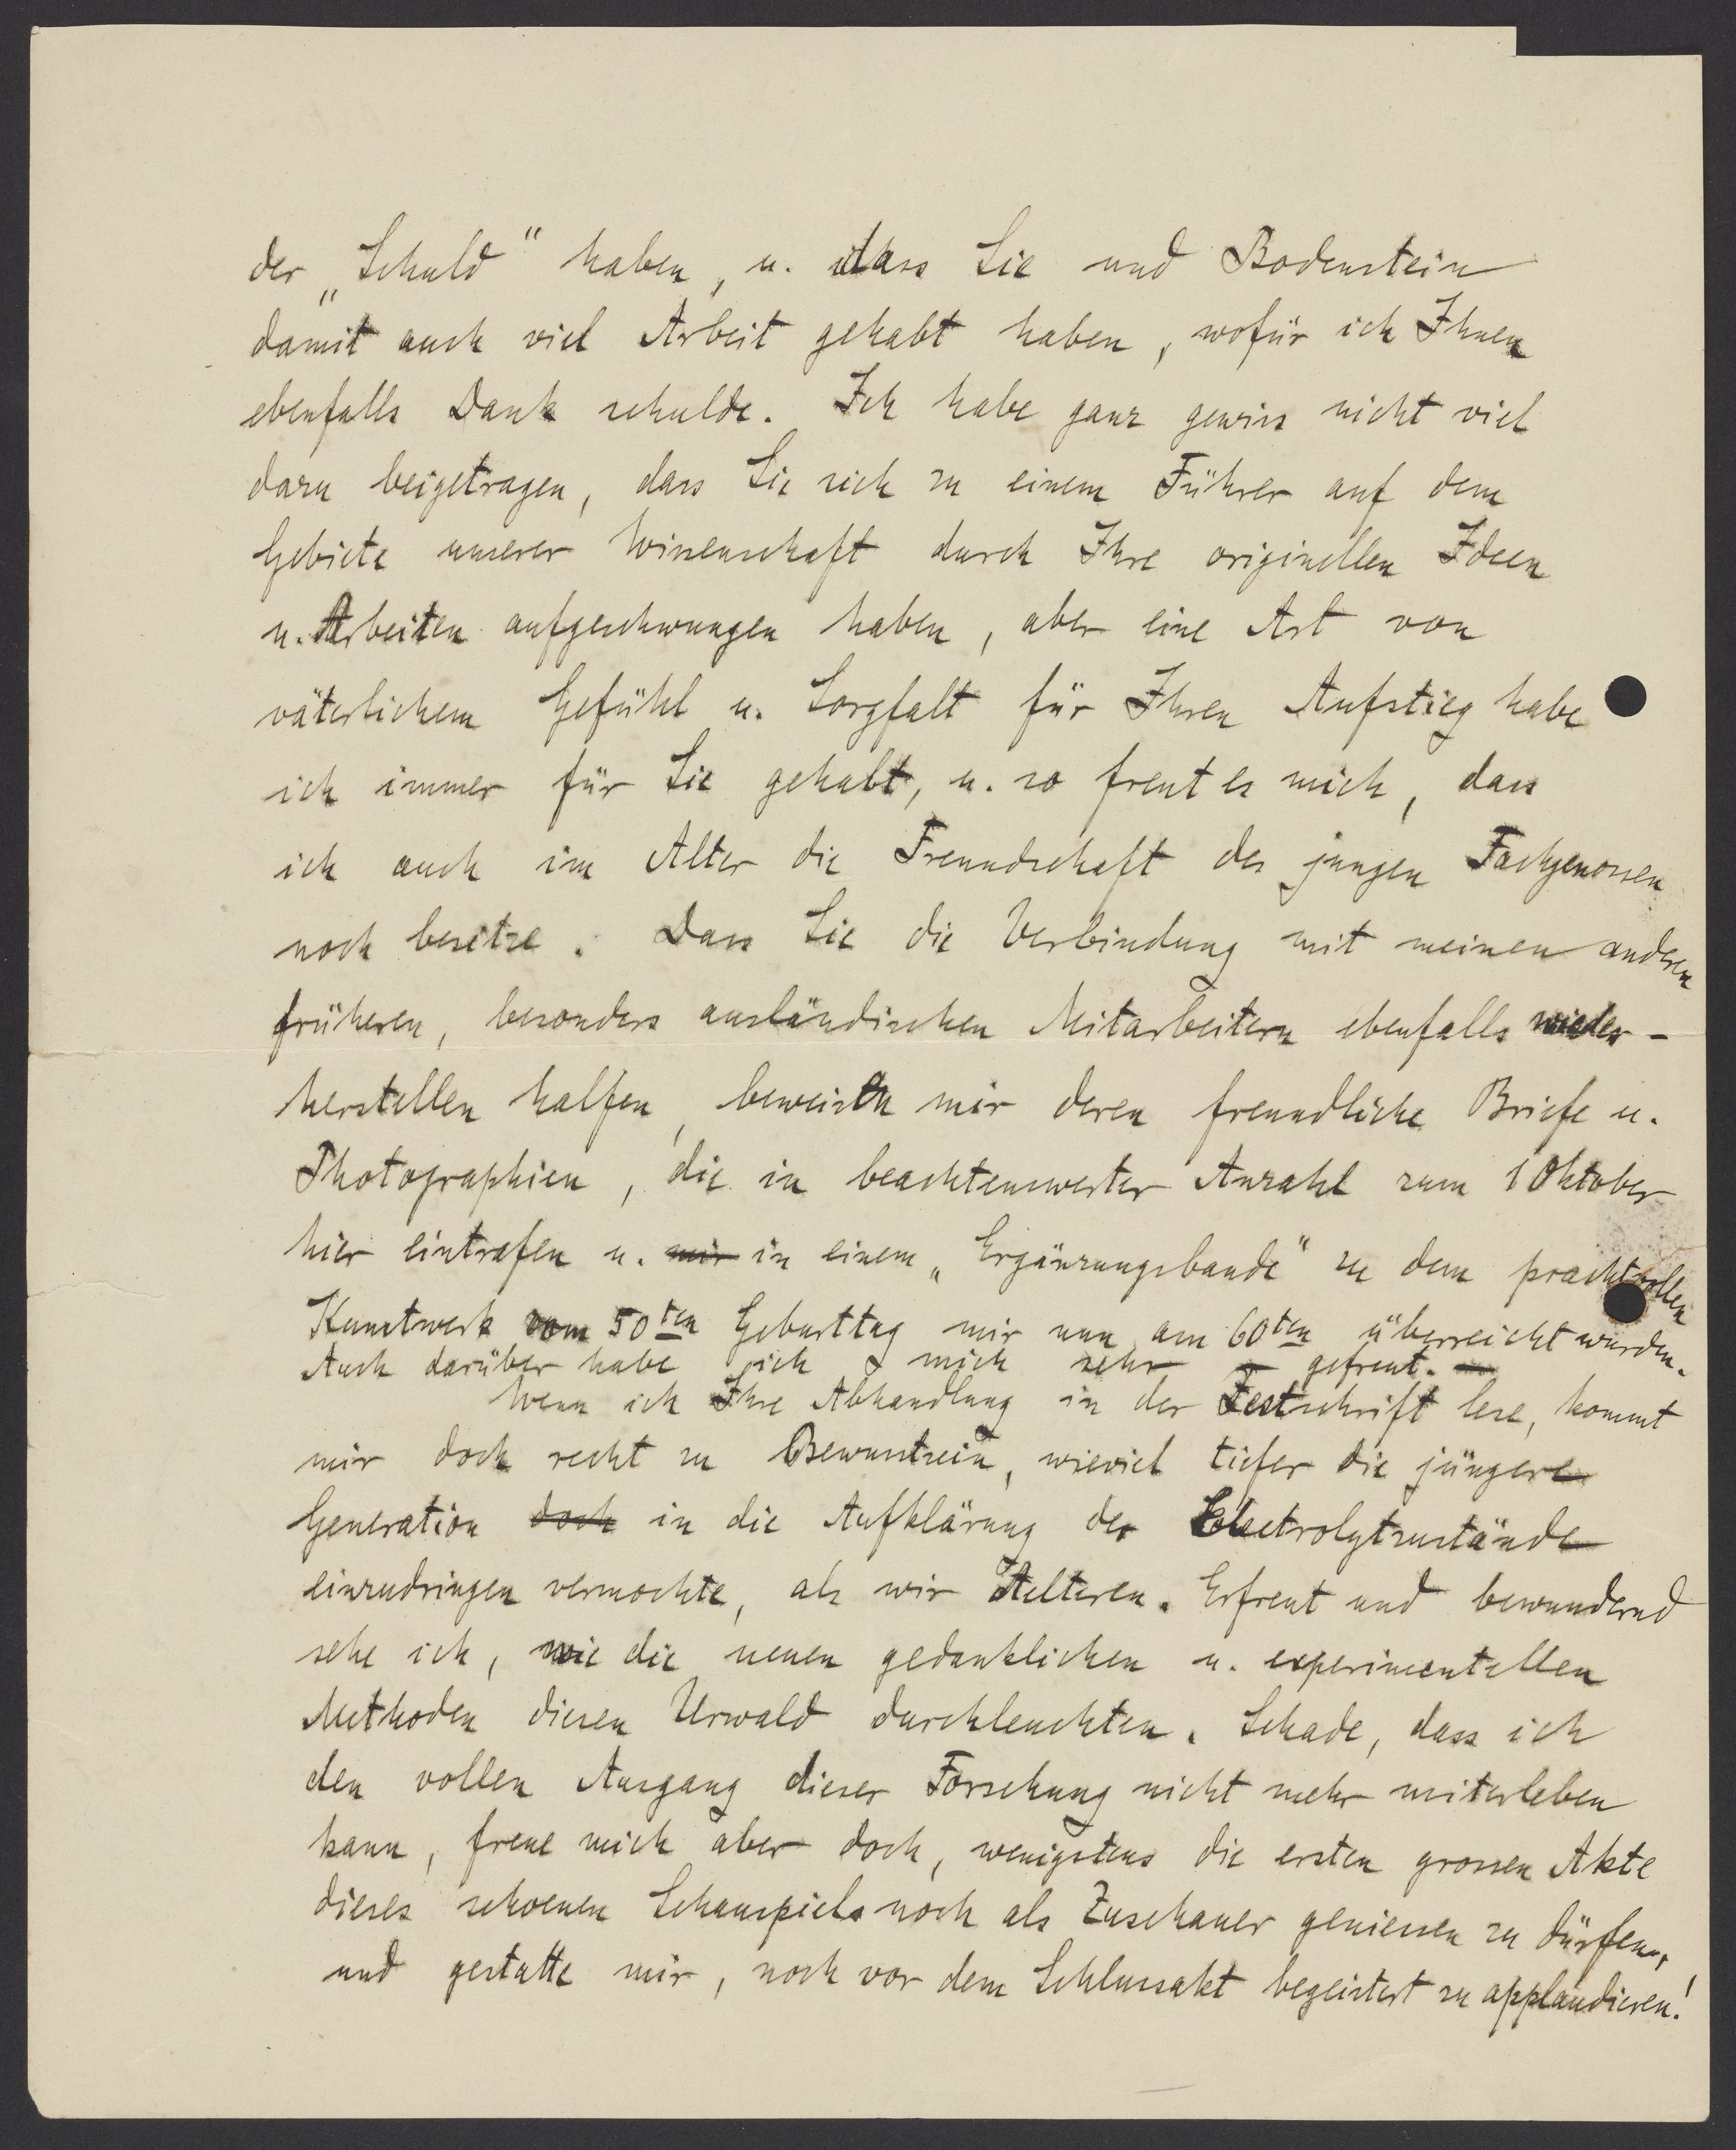 der „Schuld" haben, u. dass Sie und Bodenstein
damit auch viel Arbeit gehabt haben, wofür ich Ihnen
ebenfalls Dank schulde. Ich habe ganz gewiss nicht viel
dazu beigetragen, dass Sie sich zu einem Führer auf dem
Gebiete unserer Wissenschaft durch Ihre originellen Ideen
u. Arbeiten aufgeschwungen haben, aber eine Art von
väterlichem Gefühl u. Sorgfalt für Ihren Aufstieg habe
ich immer für Sie gehabt, u. so freut es mich, dass
ich auch im Alter die Freundschaft des jungen Fachgenossen
noch besitze. Dass Sie die Verbindung mit meinen anderen
früheren, besonders ausländischen Mitarbeitern ebenfalls wieder-
herstellen halfen, beweisen mir deren freundliche Briefe u.
Photographien, die in beachtenswerter Anzahl zum 1 Oktober
hier eintrafen u. mir in einem „Ergänzungsbande" zu dem prachtvollen
Kunstwerk vom 50ten Geburttag mir nun am 60ten überreicht wurden.
Auch darüber habe ich mich sehr – gefreut. –
Wenn ich Ihre Abhandlung in der Festschrift lese, kommt
mir doch recht zu Bewusstsein, wieviel tiefer die jüngere
Generation doch in die Aufklärung der Elektrolytzustände
einzudringen vermochte, als wir Aelteren. Erfreut und bewundernd
sehe ich, wie die neuen gedanklichen u. experimentellen
Methoden diesen Urwald durchleuchten. Schade, dass ich
den vollen Ausgang dieser Forschung nicht mehr miterleben
kann, freue mich aber doch, wenigstens die ersten grossen Akte
dieses schoenen Schauspiels noch als Zuschauer geniessen zu dürfen,
und gestatte mir, noch vor dem Schlussakt begeistert zu applaudieren!